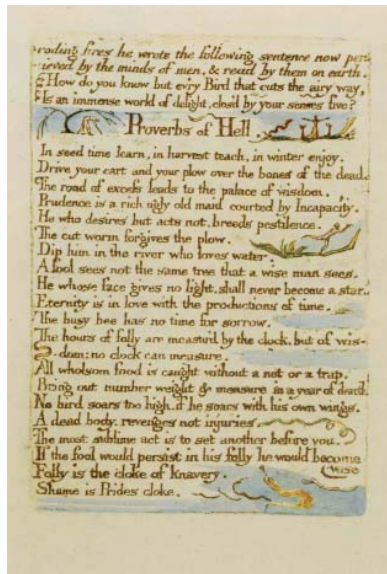 roding fires he wrote the following sentence now per
ieved by the minds of men, & read by them on earth.
How do you know but ev'ry Bird that cuts the airy way,
Is an immense world of delight, clos'd by your senses five?
Proverbs of Hell.
In seed time learn, in harvest teach, in winter enjoy.
Drive your cart and your plow over the bones of the dead.
The road of excess leads to the palace of wisdom.
Prudence is a rich ugly old maid courted by Incapacity.
He who desires but acts not, breeds pestilence.
The cut worm forgives the plow.
Dip him in the river who loves water.
A fool sees not the same tree that a wise man sees.
He whose face gives no light, shall never become a star.
Eternity is in love with the productions of time.
The busy bee has no time for sorrow.
The hours of folly are measur'd by the clock, but of wis-
-dom: no clock can measure.
All wholsom food is caught without a net or a trap.
Bring out number weight & measure in a year of dearth.
No bird soars too high, if he soars with his own wings.
A dead body, revenges not injuries.
The most sublime act is to set another before you.
If the fool would persist in his folly he would become
wise
Folly is the cloke of knavery.
Shame is Prides cloke.